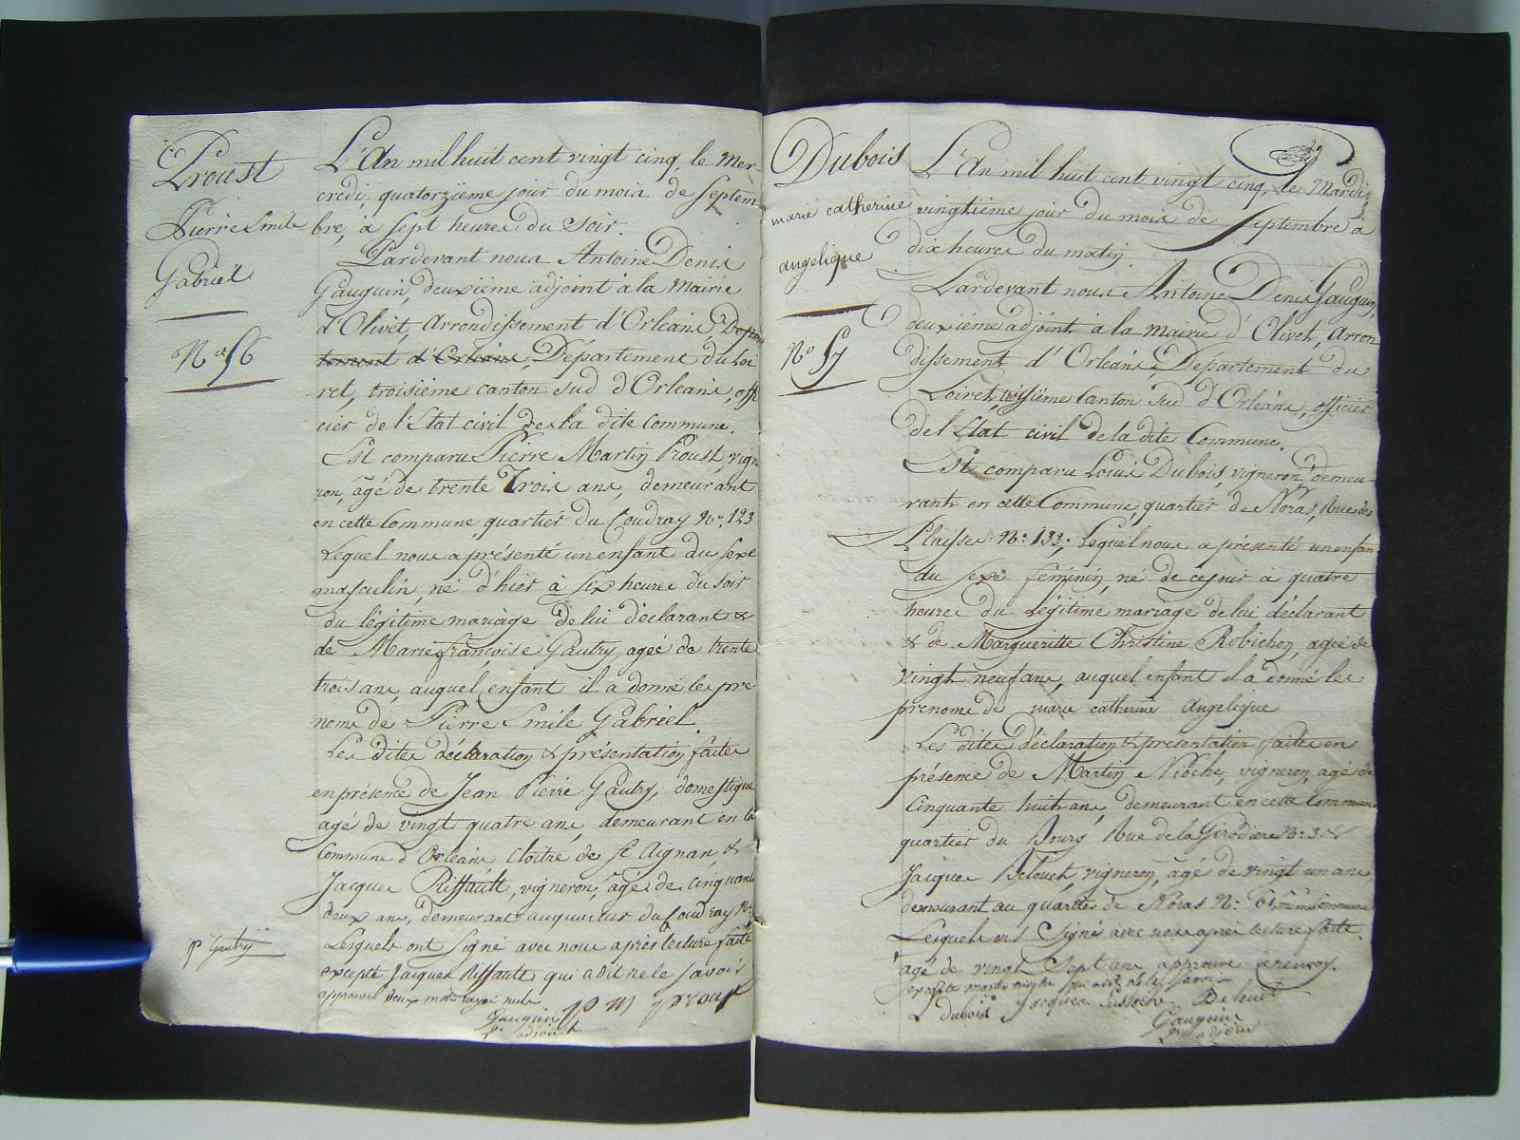 Proust
Pierre Emile
Gabriel
No 56
L'An mil huit cent vingt cinq, le Mer-
credi, quatorzième jour du mois de Septem-
bre, à sept heures du soir.
Pardevant nous Antoine Denis
Gauguin, deuxième adjoint à la Mairie
d'Olivet, Arrondissement d'Orléans,
Département du Loi
ret, troisième canton sud d'Orléans, offi
cier de l'Etat civil de la dite Commune.
Est comparu Pierre Martin Proust, vigne
ron, âgé de trente Trois ans, demeurant
en cette Commune, quartier du Coudray No. 123
Lequel nous a présenté un enfant du sexe
masculin, né d'hier à six heures du soir
du légitime mariage de lui déclarant &
de Marie françoise Gautry, agée de trente
trois ans, auquel enfant il a donné les pré
noms de Pierre Emile Gabriel.
Les dites déclaration & présentation faites
en présence de Jean Pierre Gautry, domestique
agé de vingt quatre ans, demeurant en la
Commune d'Orléans Cloitre de St Aignan, &
Jacques Riffault, vigneron, âgé de cinquante
deux ans, demeurant au quartier du Coudray No.
Lesquels ont signé avec nous après lecture faite
excepté Jacques Riffault qui a dit ne le savoir
approuvé deux mots rayés nuls
P Gautry
P M Proust
Gauguin
Dubois
marie catherine
angelique
No 57
L'An mil huit cent vingt cinq, le Mardi
vingtième jour du mois de Septembre à
dix heures du matin.
Pardevant nous Antoine Denis Gauguin,
deuxième adjoint à la mairie d'Olivet, Arron
dissement d'Orléans, Département du
Loiret, troisième Canton Sud d'Orléans, officier
de l'Etat civil de la dite Commune.
Est comparu Louis Dubois, vigneron, demeu-
rant en cette Commune, quartier de Noras, Rue des
Plaisses No. 133, Lequel nous a présenté un enfan
du sexe féminin, né de ce jour à quatre
heures du légitime mariage de lui déclarant
& de Marguerite Christine Robichon, agée de
vingt neuf ans, auquel enfant il a donné les
prenoms de marie catherine Angelique
Les dites déclaration & présentation faites en
présence de Martin Nioche, vigneron, agé de
Cinquante huit ans, demeurant en cette Commune
quartier du Bourg Rue de la Girodière No. 3 &
Jacques Belouet, vigneron, âgé de vingt un ans
demeurant au quartier de Noras No.
Lesquels ont Signé avec nous après lecture faite.
agé de vingt Sept ans approuvé
excepté martin nioche qui a dit ne le savoir
L dubois Jacques Belouet
Gauguin